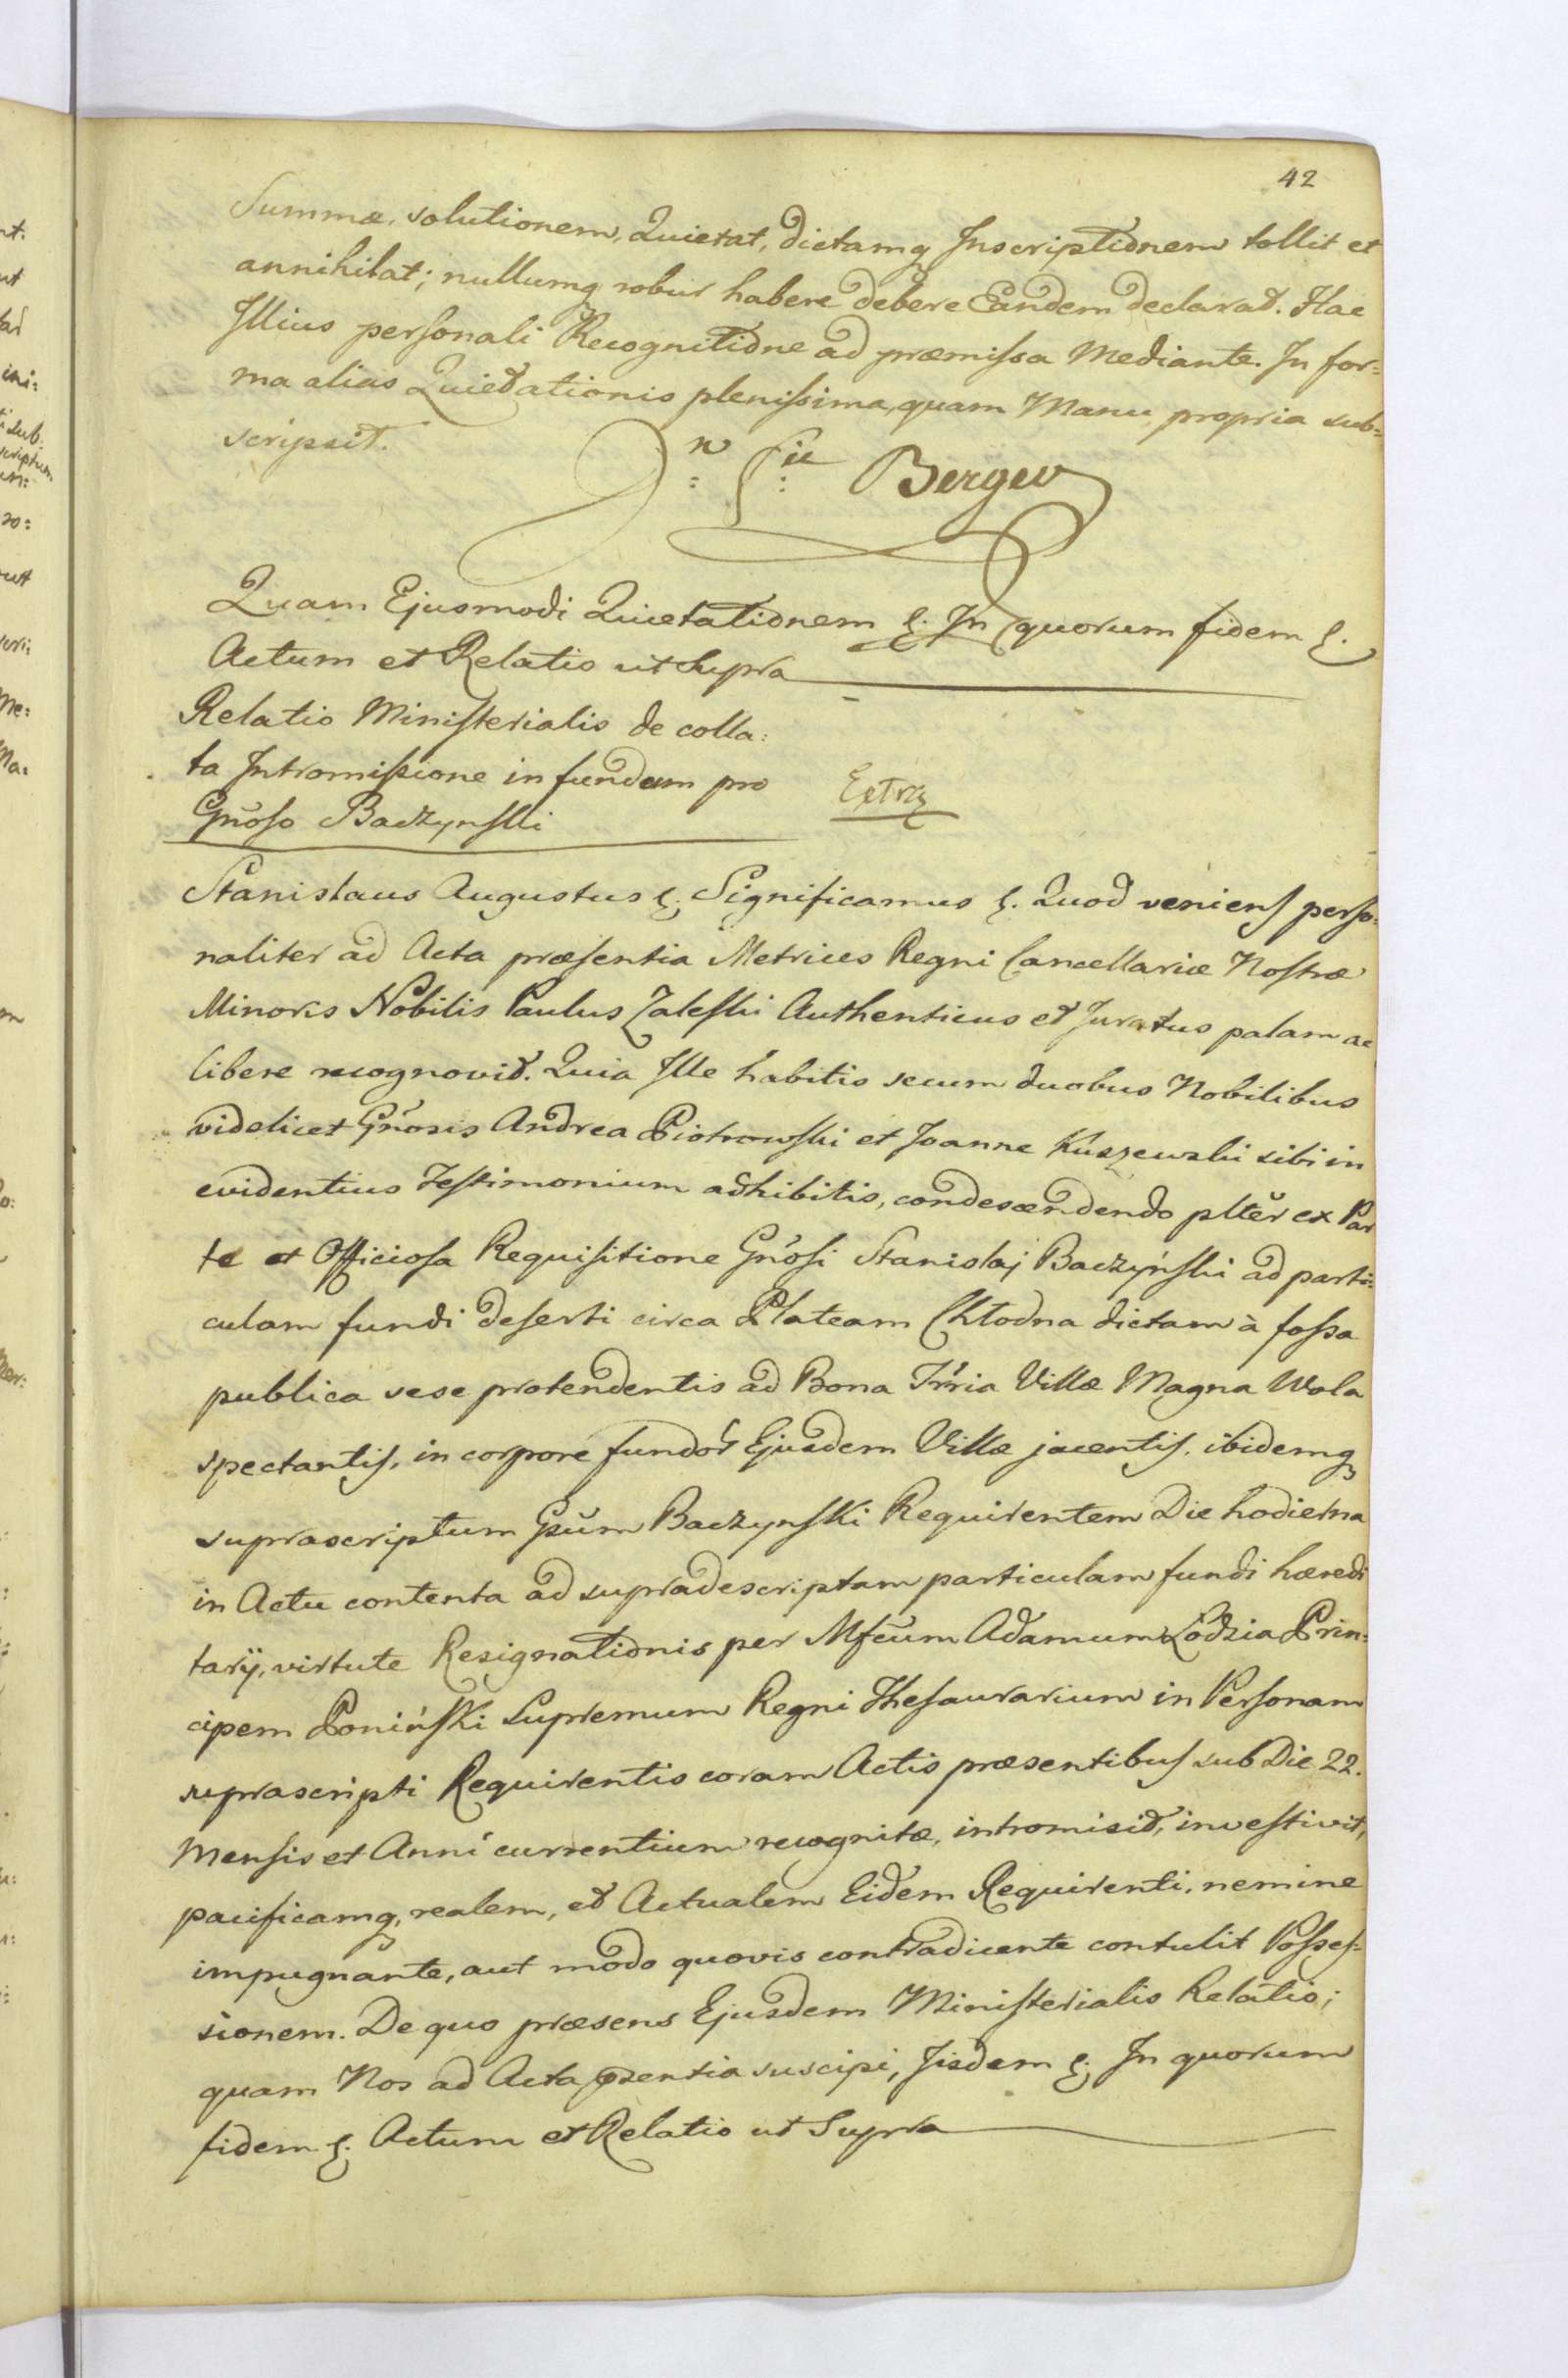 42
Summæ, solutionem, Quietat, dictamq Inscriptionem tollit et
annihilat; nullumq robur habere debere Eandem declarat. Hac
Illius personali Recognitione ad præmissa Mediante. In for=
ma alias Quietationis plenissima, quam Manu propria sub=
scripsit.
Berger
Quam Ejusmodi Quietationem &. In quorum fidem &.
Actum et Relatio ut Supra
Relatio Ministerialis de colla:
ta Intromissione in fundum pro
Gnoso Baczynski
Extr
Stanislaus Augustus &. Significamus &. Quod veniens perso=
naliter ad Acta præsentia Metrices Regni Cancellariæ Nostræ
Minoris Nobilis Paulus Zaleski Authenticus et Juratus palam ac
libere recognovit. Quia Ille habitis secum duobus Nobilibus
videlicet Gnosis Andrea Piotrowski et Joanne Kuszewski sibi in
evidentius Testimonium adhibitis, condescendendo plter ex Par
te et Officiosa Requisitione Gnosi Stanislaj Baczyński ad parti=
culam fundi deserti circa Plateam Chłodna dictam à fossa
publica sese protendentis ad Bona Trria Villæ Magna Wola
spectantis, in corpore fundor Ejusdem Villæ jacentis, ibidemq
suprascriptum Gsum Baczynski Requirentem Die hodierna
in Actu contenta ad supradescriptam particulam fundi hæredi
tarÿ, virtute Resignationis per Mfcum Adamum Łodzia Prin=
cipem Poniński Supremum Regni Thesaurarium in Personam
suprascripti Requirentis coram Actis præsentibus sub Die 22.
Mensis et Anni currentium recognitæ, intromisit, investivit,
pacificamq, realem, et Actualem Eidem Requirenti, nemine
impugnante, aut modo quovis contradicente contulit Posses=
sionem. De quo præsens Ejusdem Ministerialis Relatio;
quam Nos ad Acta pzentia suscipi, Iisdem &. In quorum
fidem &. Actum et Relatio ut Supra